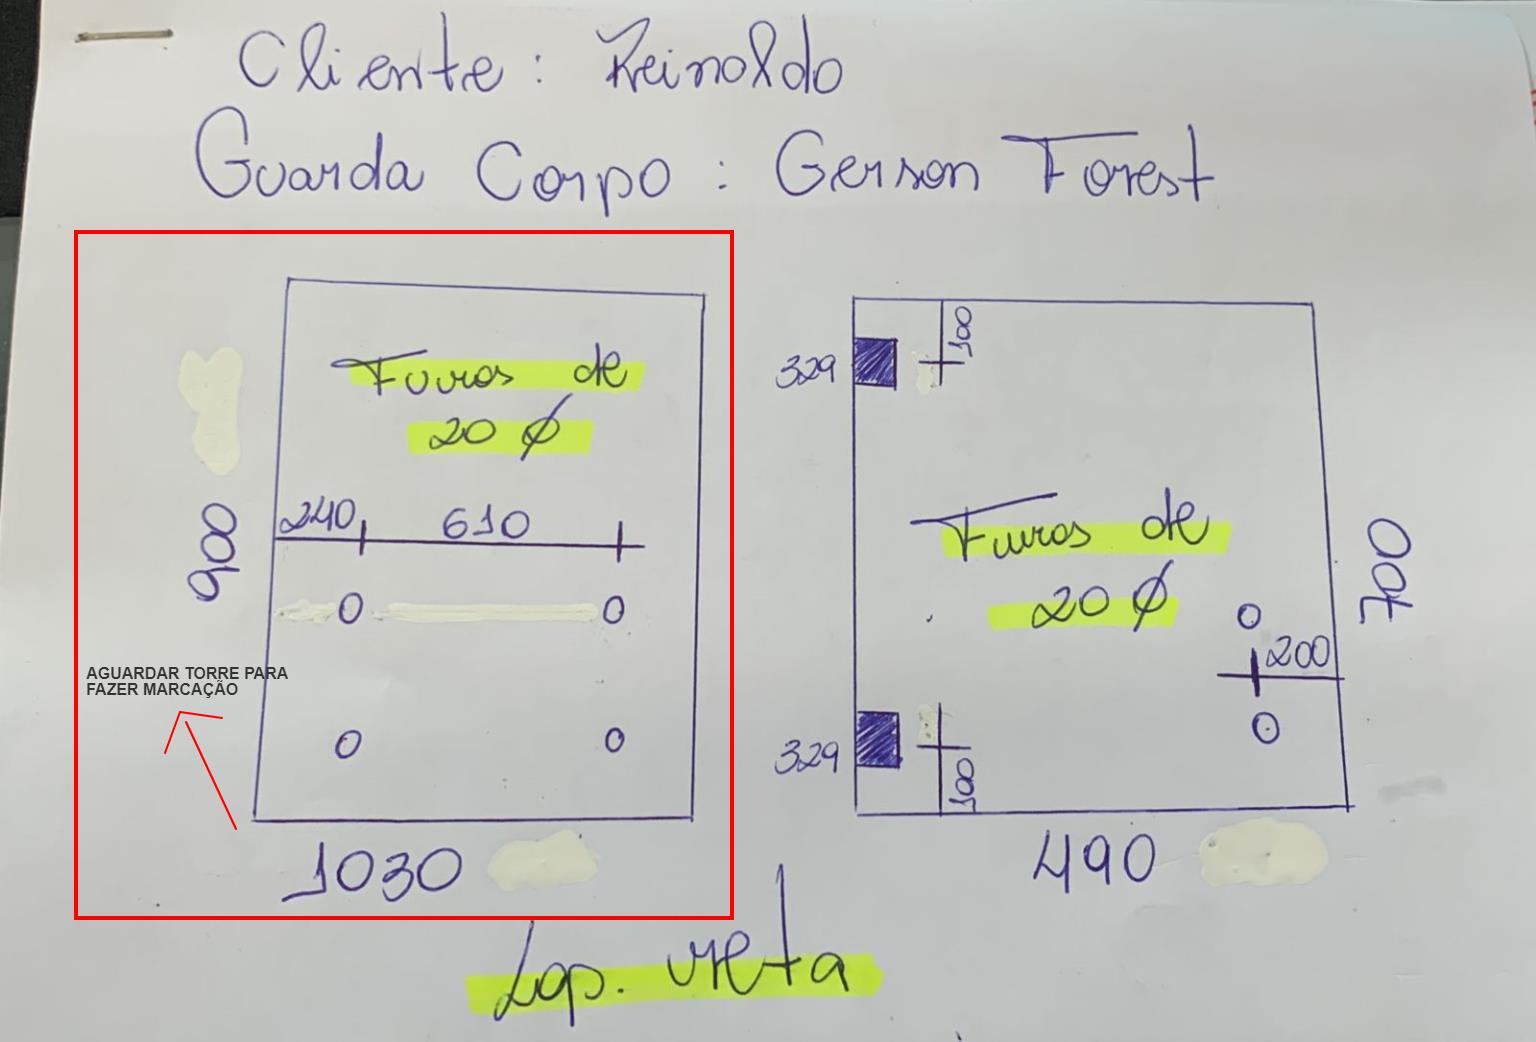 Cliente : Reinaldo
Guarda Corpo : Gerson Forest
Furos de
20 Ø
240
610
900
AGUARDAR TORRE PARA
FAZER MARCAÇÃO
1030
100
329
Furos de
20 Ø
700
200
329
100
490
Lap. reta